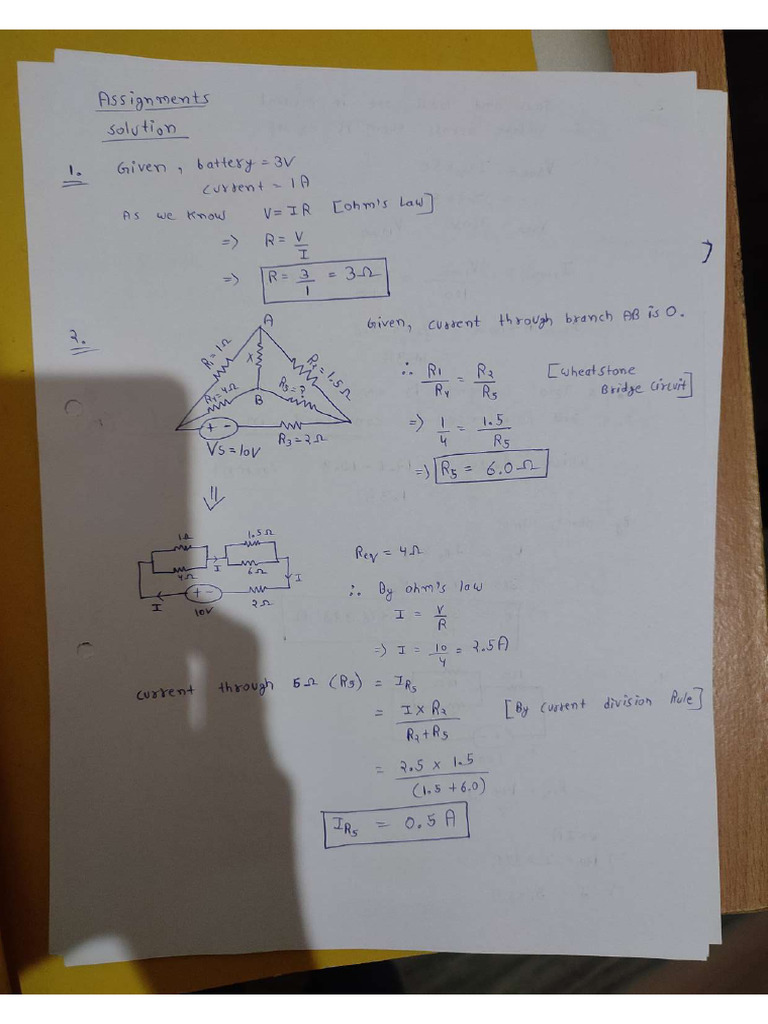 Assignments
Solution
1. Given, battery = 3V
current = 1A
As we know V = IR [ohm's Law]
=> R = V/I
=> R = 3/1 = 3Ω
2. Given, current through branch AB is 0.
A
R1 = 1Ω
X
R2 = 1.5Ω
R4 = 4Ω
B
R5 = ?
+ -
VS = 10V
R3 = 2Ω
∴ R1/R4 = R2/R5 [Wheatstone
Bridge Circuit]
=> 1/4 = 1.5/R5
=> R5 = 6.0Ω
1Ω
1.5Ω
4Ω
I
6Ω
I
I
+ -
10V
2Ω
Req = 4Ω
∴ By ohm's law
I = V/R
=> I = 10/4 = 2.5A
current through 6Ω (R5) = IR5
= I × R2 / R2 + R5 [By current division Rule]
= 2.5 × 1.5 / (1.5 + 6.0)
IR5 = 0.5A